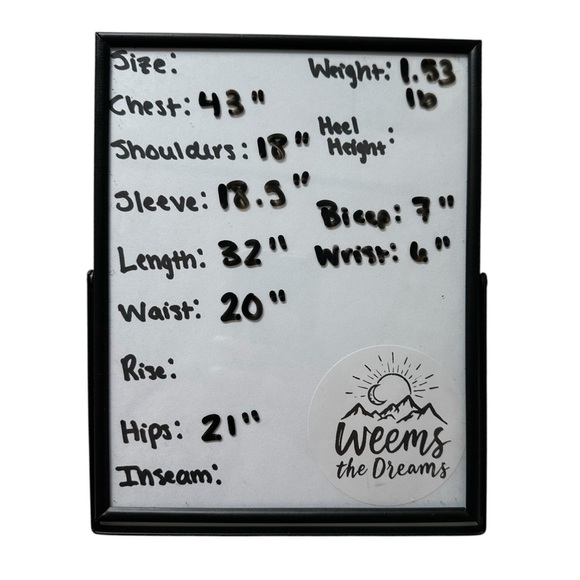 Size:
Chest: 43"
Shoulders: 18"
Sleeve: 18.5"
Length: 32"
Waist: 20"
Rise:
Hips: 21"
Inseam:
Weight: 1.53
lb
Heel
Height:
Bicep: 7"
Wrist: 6"
Weems
the Dreams